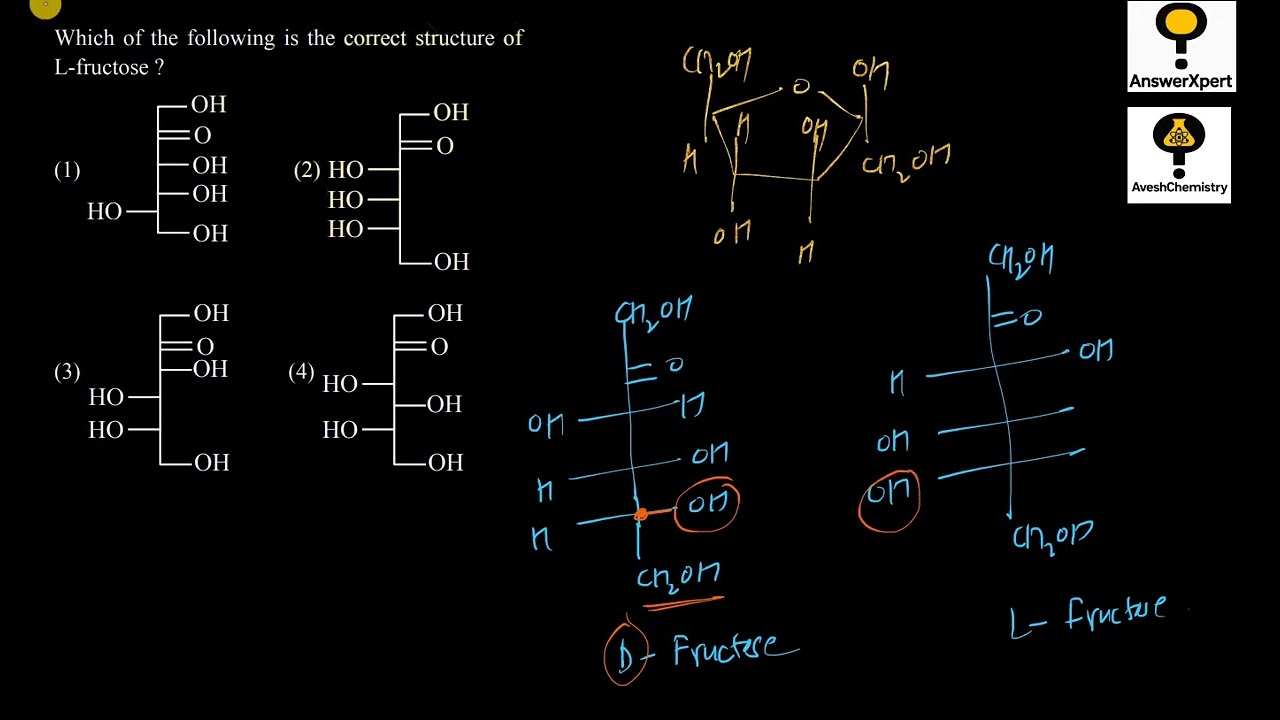 Which of the following is the correct structure of
L-fructose ?
(1)
OH
O
OH
OH
HO
OH
(2)
OH
O
HO
HO
HO
OH
(3)
OH
O
OH
HO
HO
OH
(4)
OH
O
HO
OH
HO
OH
CH2OH
O
OH
H
H
OH
CH2OH
OH
H
CH2OH
=O
OH
H
H
OH
H
OH
CH2OH
D- Fructose
CH2OH
=O
H
OH
OH
OH
CH2OH
L- Fructose
AnswerXpert
AveshChemistry